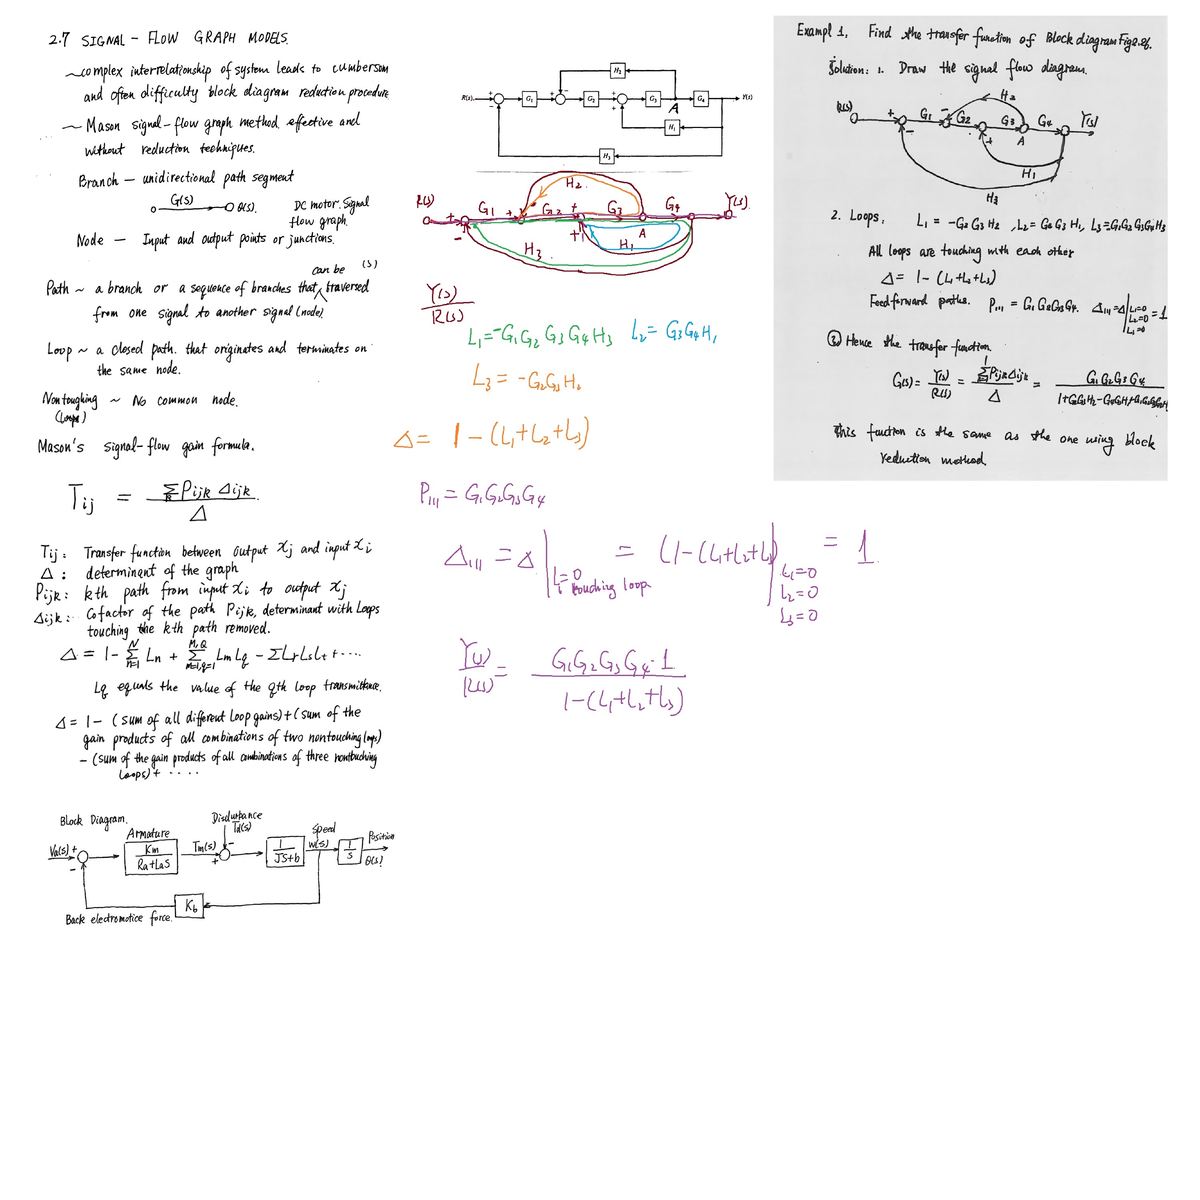 2.7 SIGNAL - FLOW GRAPH MODELS.
~ complex interrelationship of system leads to cumbersom
and often difficulty block diagram reduction procedure
~ Mason signal-flow graph method effective and
without reduction techniques.
Branch — unidirectional path segment
G(s)
θ(s).
DC motor. Signal
flow graph.
Node — Input and output points or junctions.
can be (s)
Path ~ a branch or a sequence of branches that traversed
from one signal to another signal (node)
Loop ~ a closed path. that originates and terminates on
the same node.
Nontoughing ~ No common node.
(Loops)
Mason's signal-flow gain formula.
Tij = Σ Pijk Δijk
k
Δ
Tij : Transfer function between output Xj and input Xi
Δ : determinant of the graph
Pijk : kth path from input Xi to output Xj
Δijk : Cofactor of the path Pijk, determinant with Loops
touching the kth path removed.
Δ = 1 - Σ Ln + Σ Lm Lq - ΣLrLsLt + ....
N
n=1
M,Q
m=1,q=1
Lq equals the value of the qth loop transmittance.
Δ = 1 - (sum of all different loop gains) + (sum of the
gain products of all combinations of two nontouching loops)
- (sum of the gain products of all combinations of three nontouching
Loops) + ....
Block Diagram.
Armature
Disdurbance
Td(s)
Speed
w(s)
Position
Va(s) +
-
Km
Ra+LaS
Tm(s)
+
-
1
JS+b
1
S
θ(s)
Kb
Back electromotice force.
R(s)
G1
G2
G3
G4
Y(s)
H2
A
H1
H3
R(s)
G1
H2
G2
G3
G4
Y(s)
A
H1
H3
Y(s)
R(s)
L1 = -G1G2G3G4H3 L2 = G3G4H1
L3 = -G2G3H2
Δ = 1 - (L1+L2+L3)
P111 = G1G2G3G4
Δ111 = Δ | Li=0 touching loop = (1-(L1+L2+L3)) | L1=0 = 1
L2=0
L3=0
Y(s)
R(s)
= G1G2G3G4·1
1-(L1+L2+L3)
Exampl 1, Find the transfer function of Block diagram Fig2.26.
Solution: 1. Draw the signal flow diagram.
R(s)
+
-
G1
-
G2
+
G3
G4
Y(s)
H2
A
H1
H3
2. Loops, L1 = -G2 G3 H2 , L2 = G3 G4 H1, L3 = G1G2 G3G4 H3
All loops are touching with each other
Δ = 1 - (L1+L2+L3)
Feedforward paths. P111 = G1 G2G3G4. Δ111=Δ|L1=0 = 1
L2=0
L3=0
③ Hence the transfer function.
G(s) = Y(s) = Σ Pijk Δijk = G1 G2 G3 G4
R(s)
Δ
1+G2G3H2-G3G4H1+G1G2G3G4H3
This fuction is the same as the one using block
reduction method.